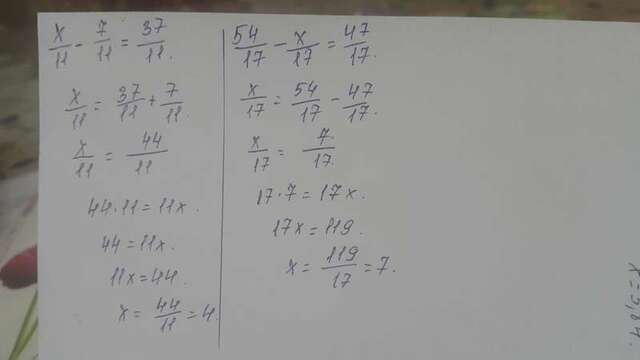 x/11 - 7/11 = 37/11.
x/11 = 37/11 + 7/11.
x/11 = 44/11
44·11=11x.
44=11x.
11x=44.
x= 44/11 =4
54/17 - x/17 = 47/17.
x/17 = 54/17 - 47/17.
x/17 = 7/17.
17·7=17x.
17x=119.
x= 119/17 =7.
x=3,84.